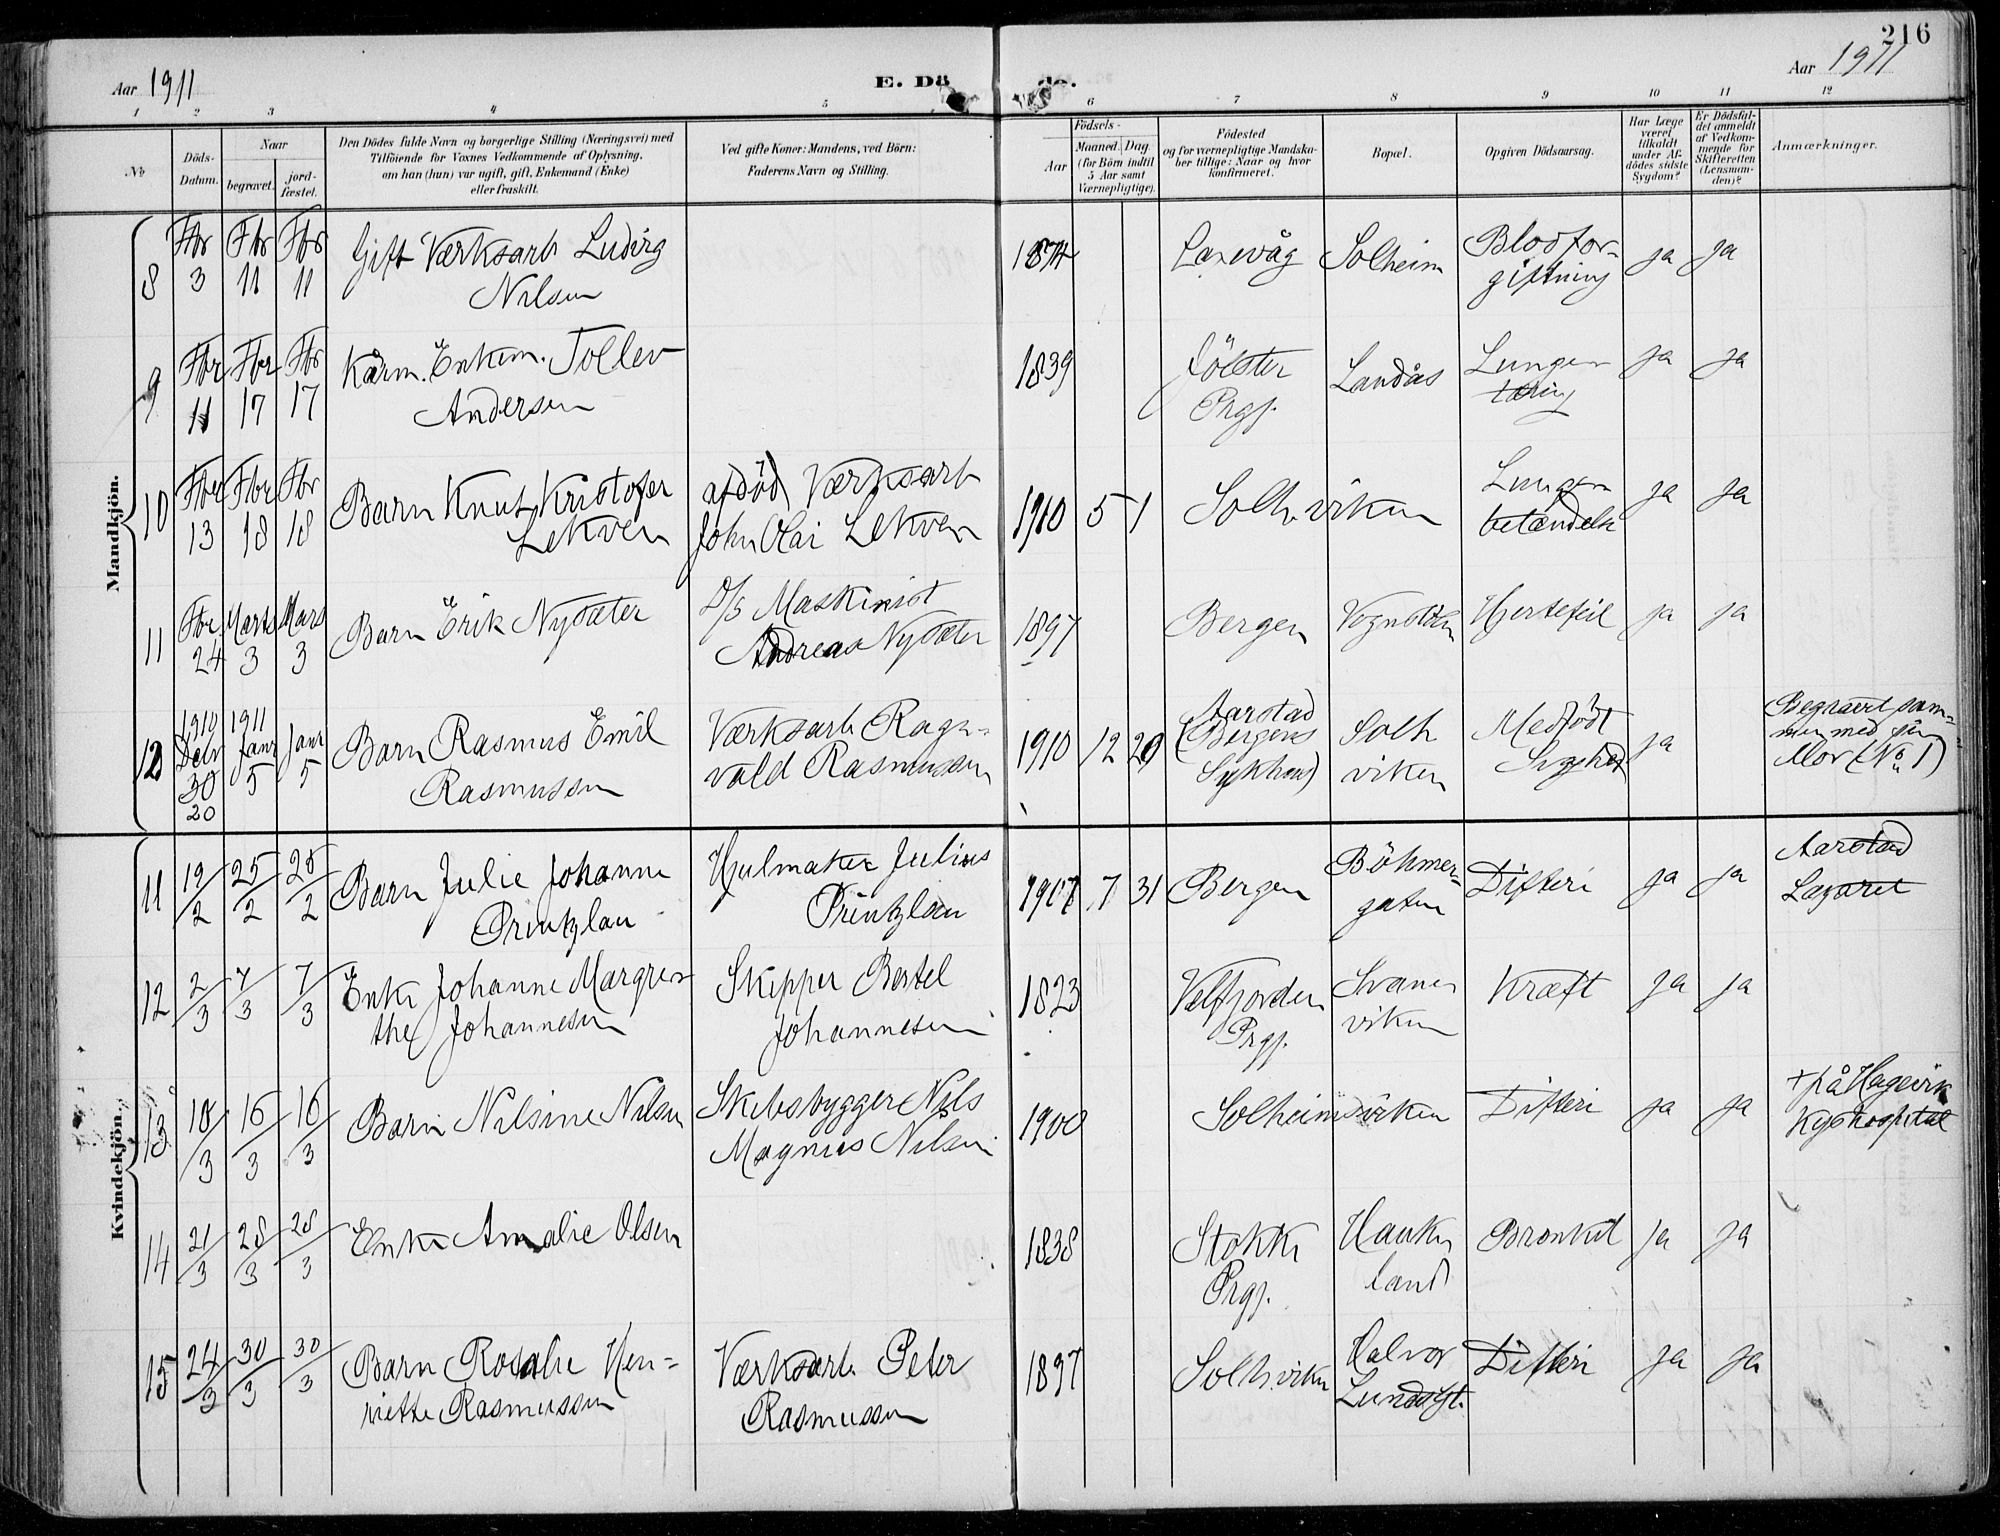 216
Aar 1911
E. Dö
de.
Aar 1911
1 2 3 4 5 6 7 8 9 10 11 12
No
Döds-
Datum.
Naar
begravet.
jord-
fæstet.
Den Dödes fulde Navn og borgerlige Stilling (Næringsvei) med
Tilföiende for Voxnes Vedkommende af Oplysning,
om han (hun) var ugift, gift, Enkemand (Enke)
eller fraskilt.
Ved gifte Koner: Mandens, ved Börn:
Faderens Navn og Stilling.
Födsels-
Aar
Maaned.
Dag.
(for Börn indtil
5 Aar samt
Værnepligtige).
Födested
og for værnepligtige Mandska-
ber tillige: Naar og hvor
konfirmeret.
Bopæl.
Opgiven Dödsaarsag.
Har Læge
været
tilkaldt
under Af-
dödes sidste
Sygdom?
Er Dödsfal-
det anmeldt
af Vedkom-
mende for
Skifteretten
(Lensman-
den)?
Anmærkninger.
Mandkjön.
8 Fbr 3 Fbr 11 Fbr 11 Gift Værksarb Ludvig
Nilsen
1874 Laxevåg Solheim Blodfor-
giftning ja ja
9 Fbr 11 Fbr 17 Fbr 17 Kårm. Enkem. Tollev
Andersen
1839 Jölster
Prgj. Landås Lungen
tæring ja ja
10 Fbr 13 Fbr 18 Fbr 18 Barn Knut Kristofer
Lekven
afdöd Værksarb
John Olai Lekven
1910 5 1 Solh.viken Lungen
betændelse ja ja
11 Fbr 24 Marts 3 Mars 3 Barn Erik Nydæter
D/s Maskinist
Andreas Nydæter
1897 Bergen Vognstölen Hjertefeil ja ja
12 1910 Decbr 30 20 1911 Janr 5 Janr 5 Barn Rasmus Emil
Rasmussen
Værksarb Ragn-
vald Rasmussen
1910 12 20 Aarstad
(Bergens
Sykhus) Solh
viken Medfödt
Svaghed ja
Begravet sam-
men med sin
Mor (No 1)
Kvindekjön.
11 19/2 25/2 25/2 Barn Julie Johanne
Printzlau
Hjulmaker Julius
Printzlau
1907 7 31 Bergen Böhmer-
gaten Difteri ja ja
Aarstad
Lazaret
12 2/3 7/3 7/3 Enke Johanne Margre-
the Johannesen
Skipper Bertel
Johannesen
1823 Velfjorden
Prgj. Svane
viken Kræft ja ja
13 10/3 16/3 16/3 Barn Nilsine Nilsen
Skibsbygger Nils
Magnus Nilsen
1900 Solheimsviken Difteri ja ja
† på Hagevik
Kysthospital
14 21/3 28/3 28/3 Enke Amalie Olsen
1838 Stokke
Prgj. Hauke
land Bronkit ja ja
15 24/3 30/3 30/3 Barn Rosalie Hen-
riette Rasmussen
Værksarb. Peter
Rasmussen
1897 Solh.viken Halvor
Lundsgt. Difteri ja ja